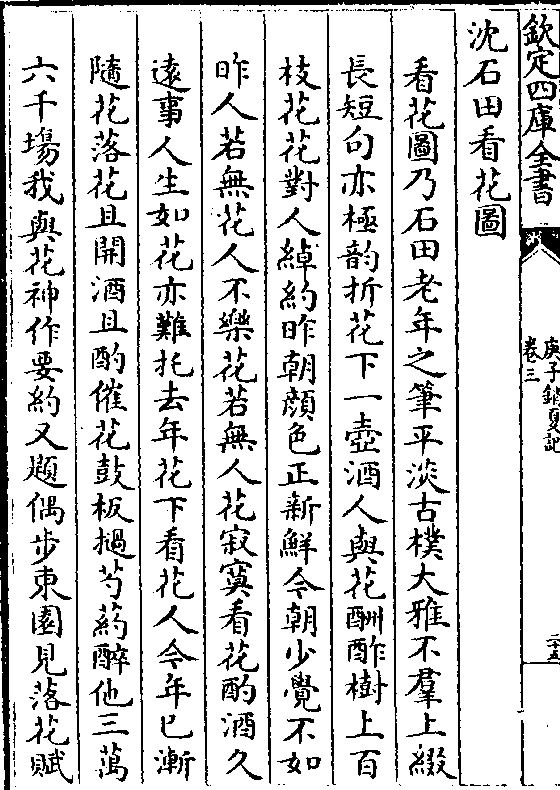 欽定四庫全書
庚子銷夏記
卷三
二十五
沈石田看花圖
看花圖乃石田老年之筆平淡古樸大雅不羣上綴
長短句亦極韵折花下一壺酒人與花酬酢樹上百
枝花花對人綽約昨朝顔色正新鮮今朝少覺不如
昨人若無花人不樂花若無人花寂寞看花酌酒久
逺事人生如花亦難托去年花下看花人今年已漸
隨花落花且開酒且酌催花鼓板撾芍藥醉他三萬
六千場我與花神作要約又題偶步東園見落花賦